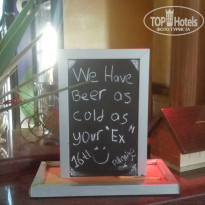 TOP Hotels
ФОТО ТУРИСТА
We Have
Beer as
cold as
your "Ex"
16tl